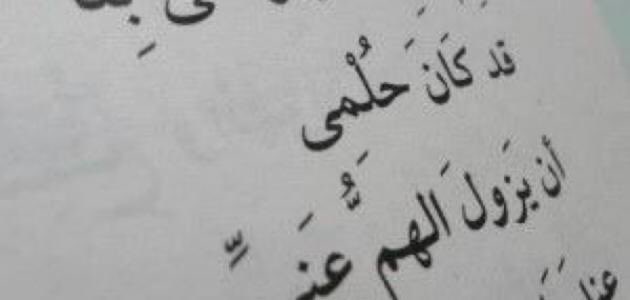 قد كَانَ حُلْمى
أن يَزولَ الهمُّ عَنِّى